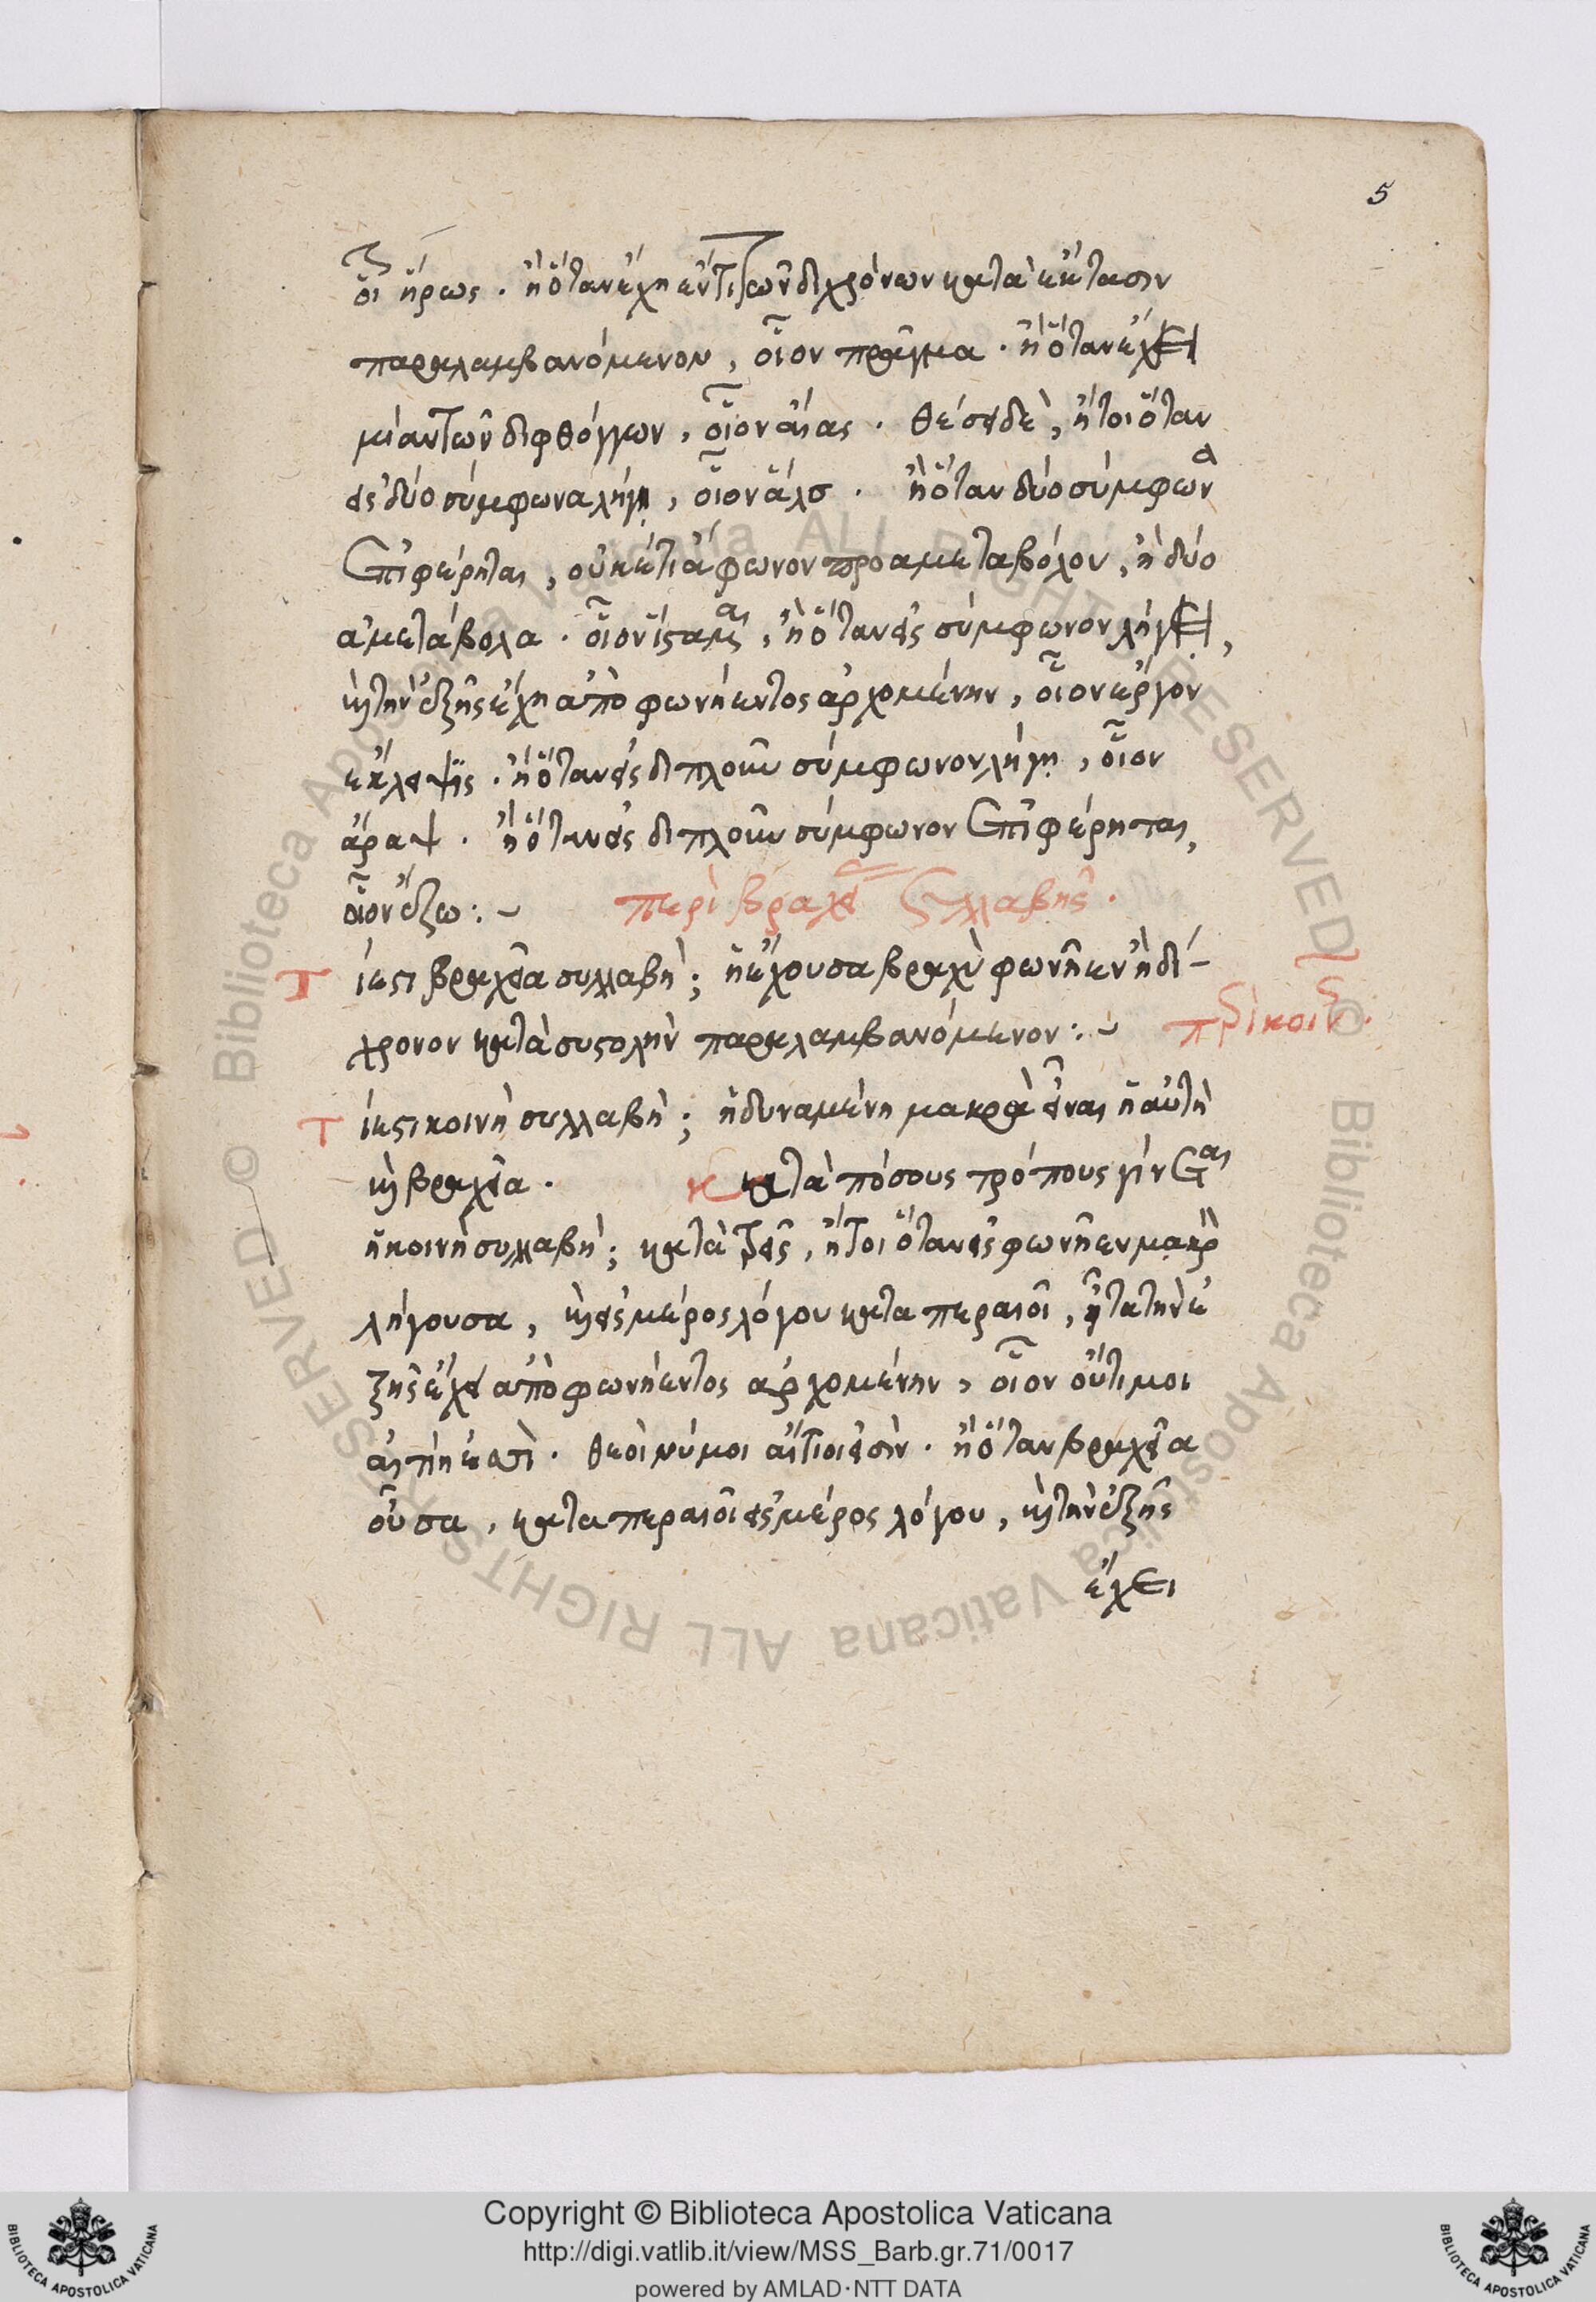 5
οἷον ἥρως · ἢ ὅταν ἔχη ἕν τι τῶν διχρόνων κατὰ ἔκτασιν
παραλαμβανόμενον, οἷον πρᾶγμα · ἢ ὅταν ἔχει
μίαν τῶν διφθόγγων, οἷον αἴας · θέσει δὲ, ἤτοι ὅταν
εἰς δύο σύμφωνα λήγη, οἷον ἅλς · ἢ ὅταν δύο σύμφωνα
ἐπιφέρηται, οὐκέτι ἄφωνον προ αμεταβόλου, ἢ δύο
αμετάβολα · οἷον ἵσταμαι, ἢ ὅταν εἰς σύμφωνον λήγει,
καὶ τὴν ἑξῆς ἔχη ἀπὸ φωνήεντος ἀρχομένην, οἷον ἔργον
ἔκλεψας · ἢ ὅταν εἰς διπλοῦν σύμφωνον λήγη, οἷον
ἄραψ · ἢ ὅταν εἰς διπλοῦν σύμφωνον ἐπιφέρηται,
οἷον ἔξω :~ περὶ βραχείας συλλαβῆς ·
Τί ἐστι βραχεῖα συλλαβή; ἡ ἔχουσα βραχὺ φωνῆεν ἢ δί-
χρονον κατὰ συστολὴν παραλαμβανόμενον :~ περὶ κοινῆς ·
Τί ἐστι κοινὴ συλλαβή; ἡ δυναμένη μακρὰ εἶναι ἡ αὐτὴ
καὶ βραχεῖα · κατὰ πόσους τρόπους γίνεται
ἡ κοινὴ συλλαβή; κατὰ τρεῖς, ἤτοι ὅταν εἰς φωνῆεν μακρὸν
λήγουσα, καὶ εἰς μέρος λόγου καταπεραιοῖ, εἶτα τὴν ἑ
ξῆς ἔχει ἀπὸ φωνήεντος ἀρχομένην, οἷον οὔτι μοι
αἰτίη ἐσσὶ · θεοὶ νύ μοι αἴτιοι εἰσὶν · ἢ ὅταν βραχεῖα
οὖσα, καταπεραιοῖ εἰς μέρος λόγου, καὶ τὴν ἑξῆς
ἔχει
Copyright © Biblioteca Apostolica Vaticana
http://digi.vatlib.it/view/MSS_Barb.gr.71/0017
powered by AMLAD·NTT DATA